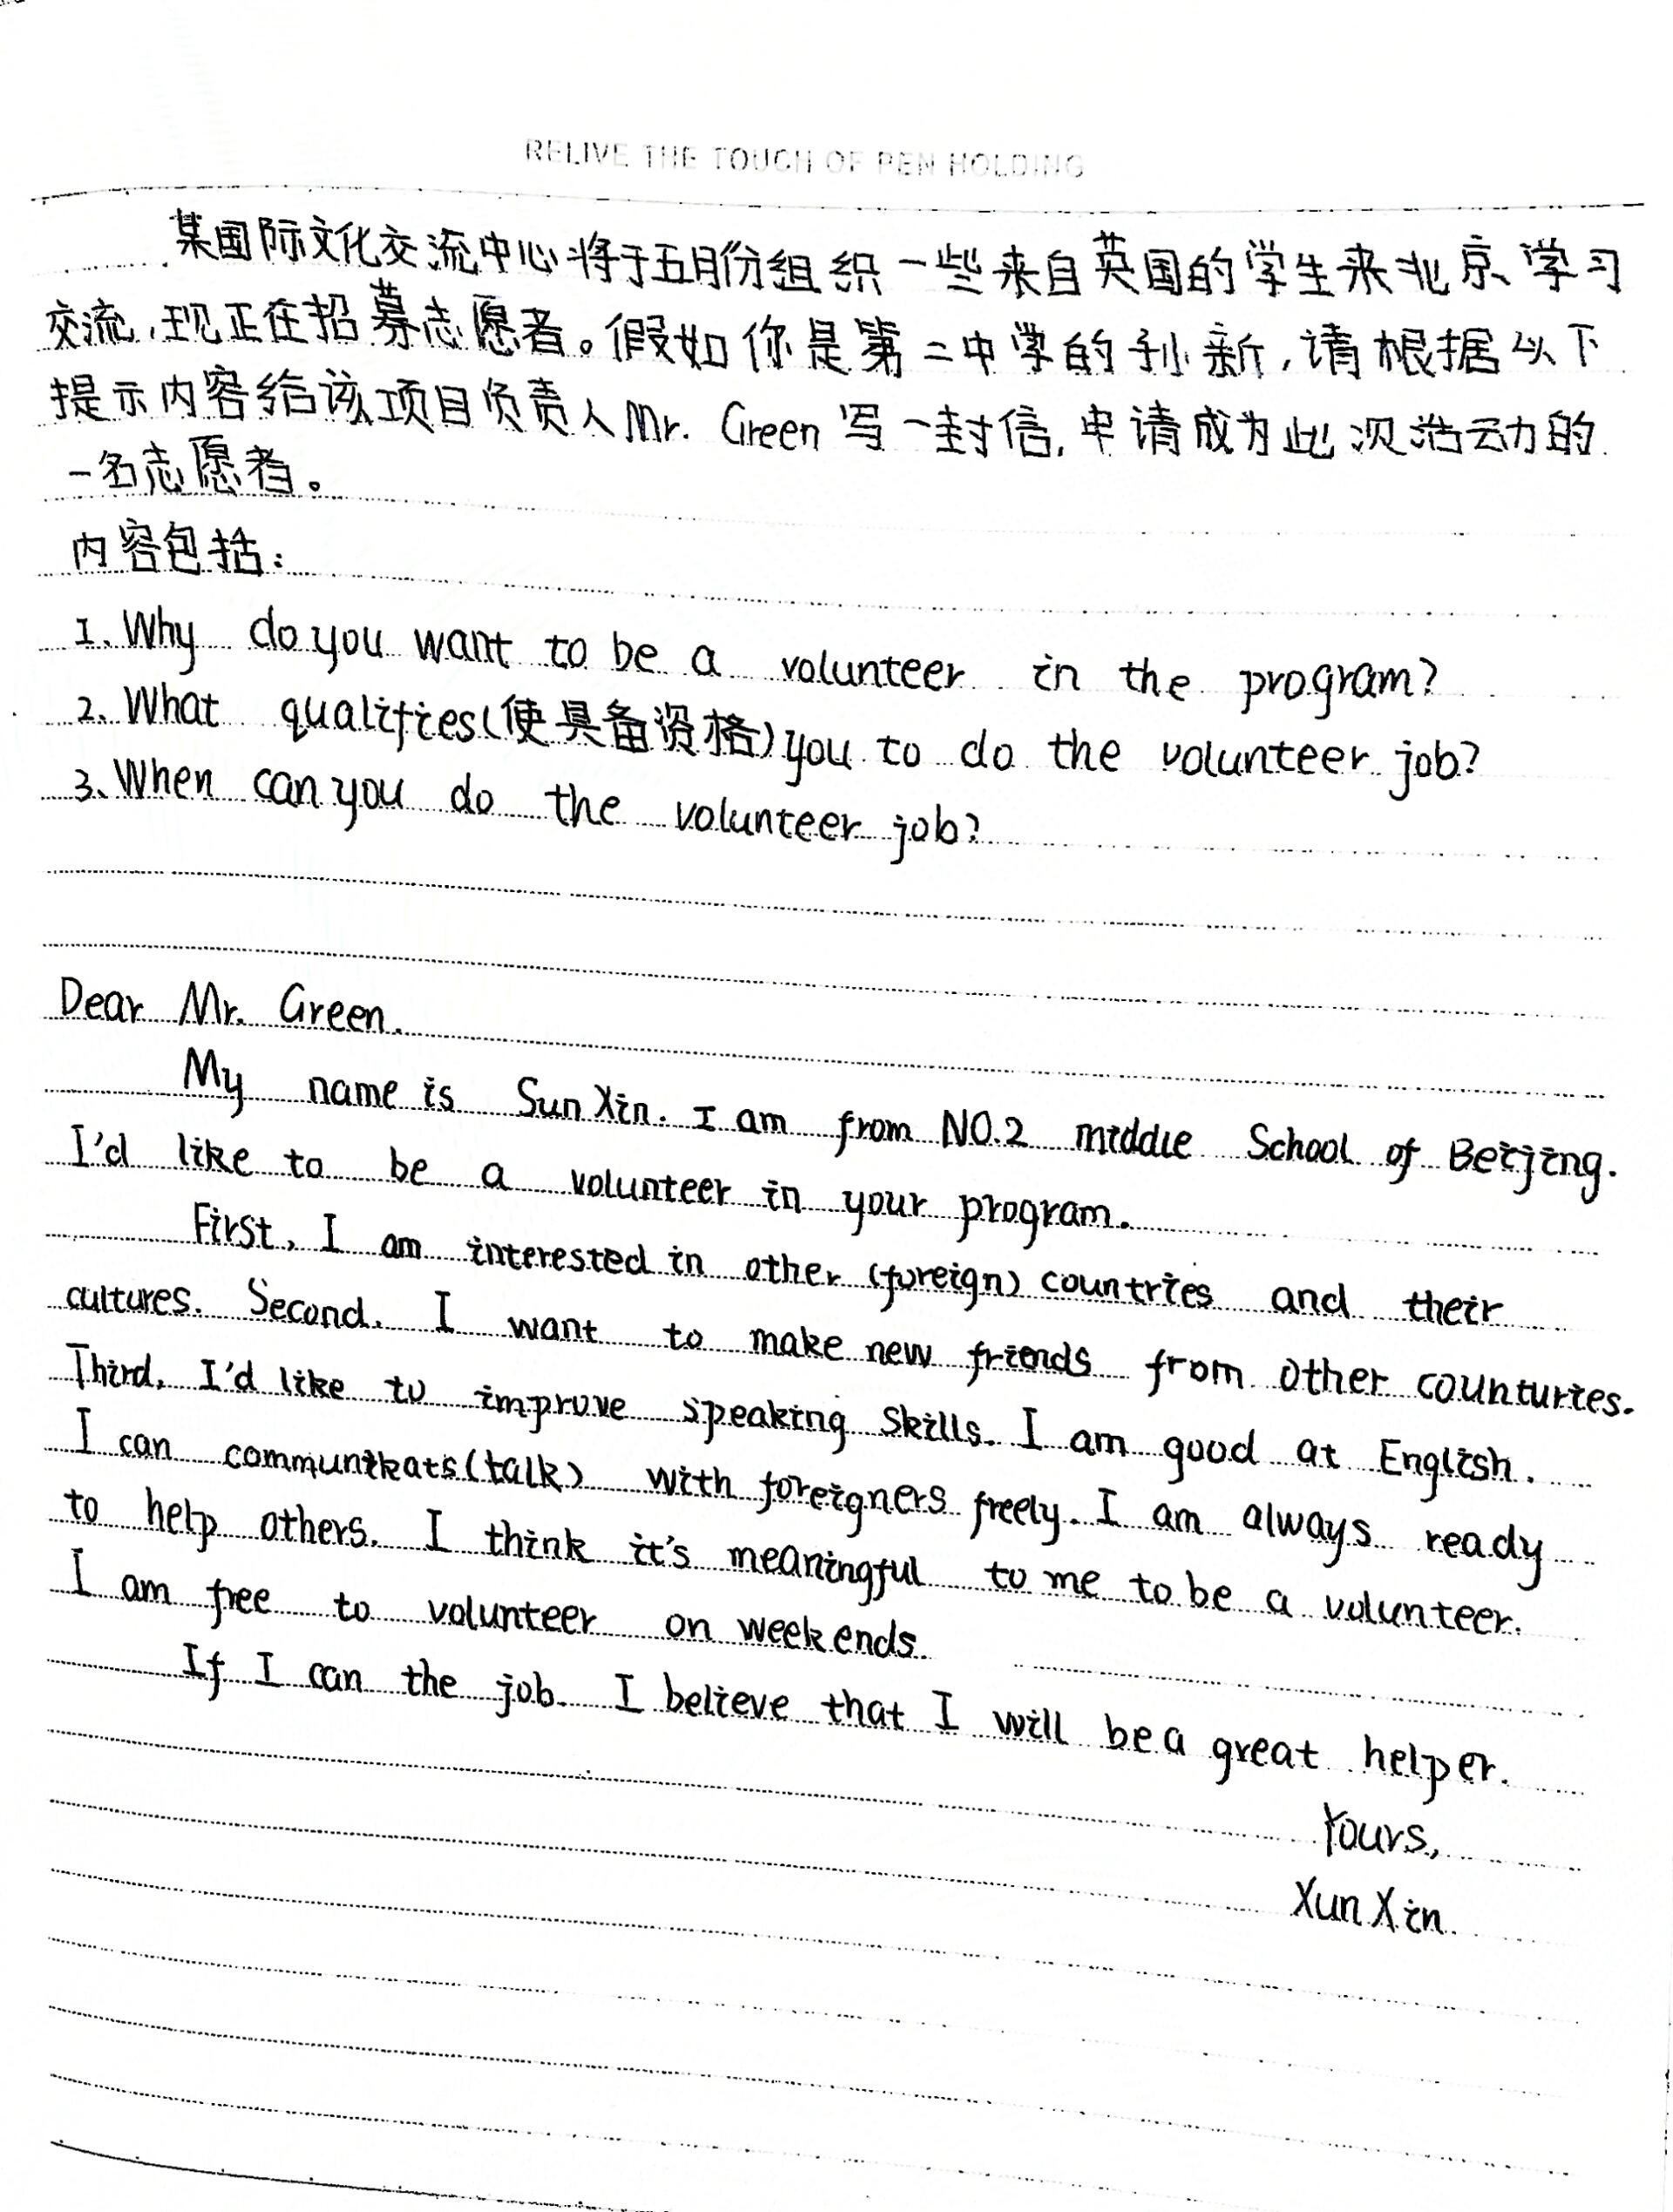 RELIVE THE TOUCH OF PEN HOLDING
某国际文化交流中心将于五月份组织一些来自英国的学生来北京学习
交流,现正在招募志愿者。假如你是第二中学的孙新,请根据以下
提示内容给该项目负责人Mr. Green写一封信,申请成为此次活动的
一名志愿者。
内容包括:
1. Why do you want to be a volunteer in the program?
2. What qualifies(使具备资格)you to do the volunteer job?
3. When can you do the volunteer job?
Dear Mr. Green.
My name is Sun Xin. I am from NO.2 middle School of Beijing.
I'd like to be a volunteer in your program.
First, I am interested in other (foreign) countries and their
cultures. Second. I want to make new friends from other counturies.
Third, I'd like to improve speaking skills. I am good at English.
I can communikats(talk) with foreigners freely. I am always ready
to help others. I think it's meaningful to me to be a volunteer.
I am free to volunteer on weekends.
If I can the job. I believe that I will be a great helper.
Yours,
Xun Xin